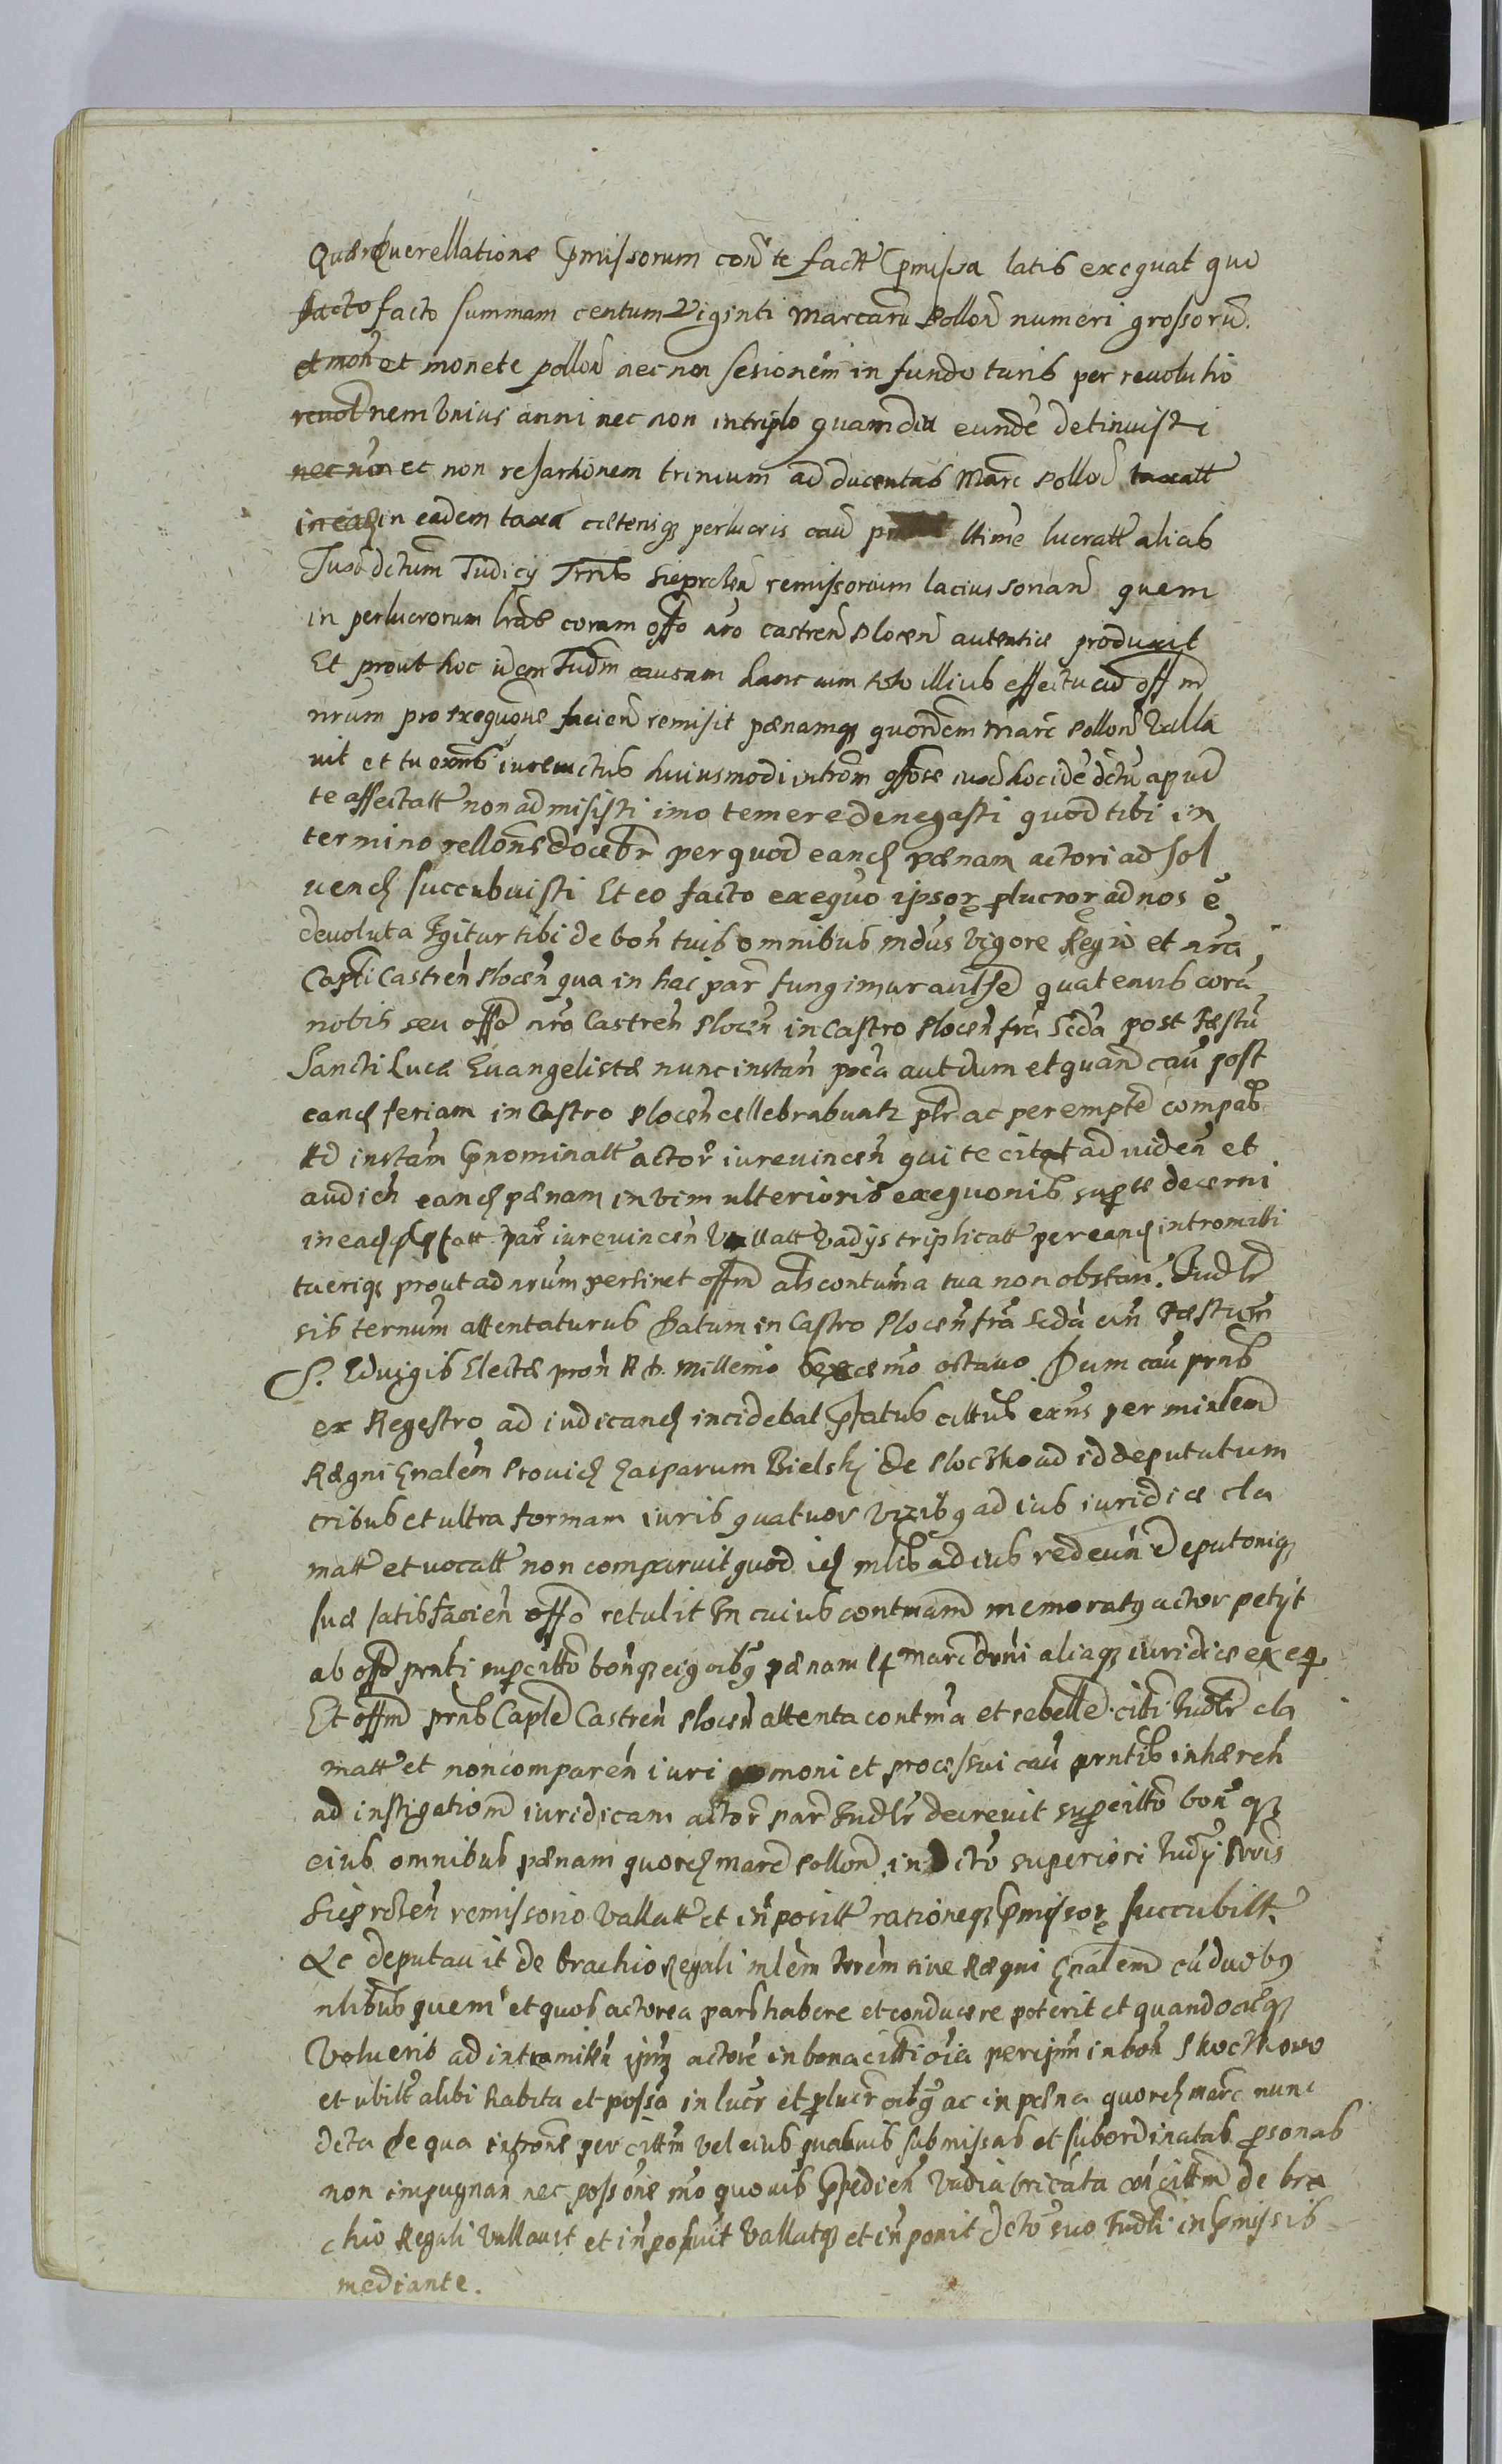 Querellatione pmissorum con te factt pmissa latis exequat qui
facto summam centum Viginti Marcaru Pollon numeri grossoru.
et monete pollon nec non sesionem in fundo turis per revolutio
nem Unius anni nec non in triplo quamdiu eunde detinuisti
nec non resartionem trinium ad ducentas Marc Pollon
in eadem taxa cæterisq perlucris cau ltime lucratt alias
Juxa dctum Judicy Trris Sieprcien remissorium lacius sonan quem
in perlucrorum lrās coram offo nro castren Plocen autentice produxit
Et prout hoc idem Judm causam hanc cum toto illius effectu ad offm
nrum pro exequōne facien remisit pænamq quordem Marc Pollon Valla
vit et tu huiusmodi introm apud
te affectatt non admisisti imo temere denegasti quod tibi in
termino rellonis docebr per quod eand pænam actori ad sol
uend succubuisti Et eo facto exequo ipsor plucror ad nos ē
devoluta Igitur tibi de bon tuis omnibus mdūs vigore Regia et nra
Capti Castren Plocen qua in hac par fungimur autte quatenus corā
nobis seu offo nro Castren Plocen in Castro Plocen fra Scda post Fæstū
Sancti Lucæ Evangelistæ nunc instan pōca aut dum et quand cau post
eand feriam in Castro Plocen cellebrabuntr plr ac perempte compas
Ad instām pnominatt actor iurevincen qui te citat ad viden et
audien eand pænam in vim ulterioris exequonis super te decerni
in ead par iurevincen Vallatt Vadys triplicatt per eand intromitti
tueriq prout ad nrum pertinet offm als contuma tua non obstan. Judlr
sis ternum attentaturus Datum in Castro Plocen fra Scda an Fæstum
S. Eduigis Electæ pron A D. Millemo octavo. Dum cau prns
ex Regestro ad iudicand incidebat pfatus cittus exns per mistem
Rægni Gnalem Provid Gasparum Bielski de Ploczko ad id deputatum
tribus et ultra formam iuris quatuor vizibq ad ius iuridice cla
matt et vocatt non comparuit quod id mlis ad ius redeun Deputoniq
suæ satisfacien offo retulit In cuius contuam memoratq actor petyt
ab offo prnti super citto bonq eiq oibq pænam 14 marc drni aliaq iuridice exeq
Et offm prns Caple Castren Plocen attenta contma et rebelle citti Judlr cla
matt et non comparen iuri comoni et processui cau prntis inhæren
ad instigationm iuridicam actor par Judlr decrevit super citto bon q
eius omnibus pænam quord marc Pollon in Dcto superiori Judy Trris
Sieprcien remissorio Vallatt et in posilt rationeq pmissor succubilt.
Ac deputavit de brachio Regali mlem Trrem sive Rægni Gnalem cū duobq
nlibus quem et quos actorea pars habere et conducere poterit et quandocuq
Voluerit ad intromitten ipm actore in bona citti oia per ipm in bon Skoczkowo
et ubilt alibi habita et possa in lucr et plucr oibq ac in pæna quord marc nunc
dcta de qua introne per cittm vel eius quasvis submissas et subordinatas psonas
non impugnan nec possone mo quovis ppedien Vadia tricata in cittm de bra
chio Regali Vallavit et in posuit Vallatq et in ponit dcto suo Judli in pmissis
mediante.